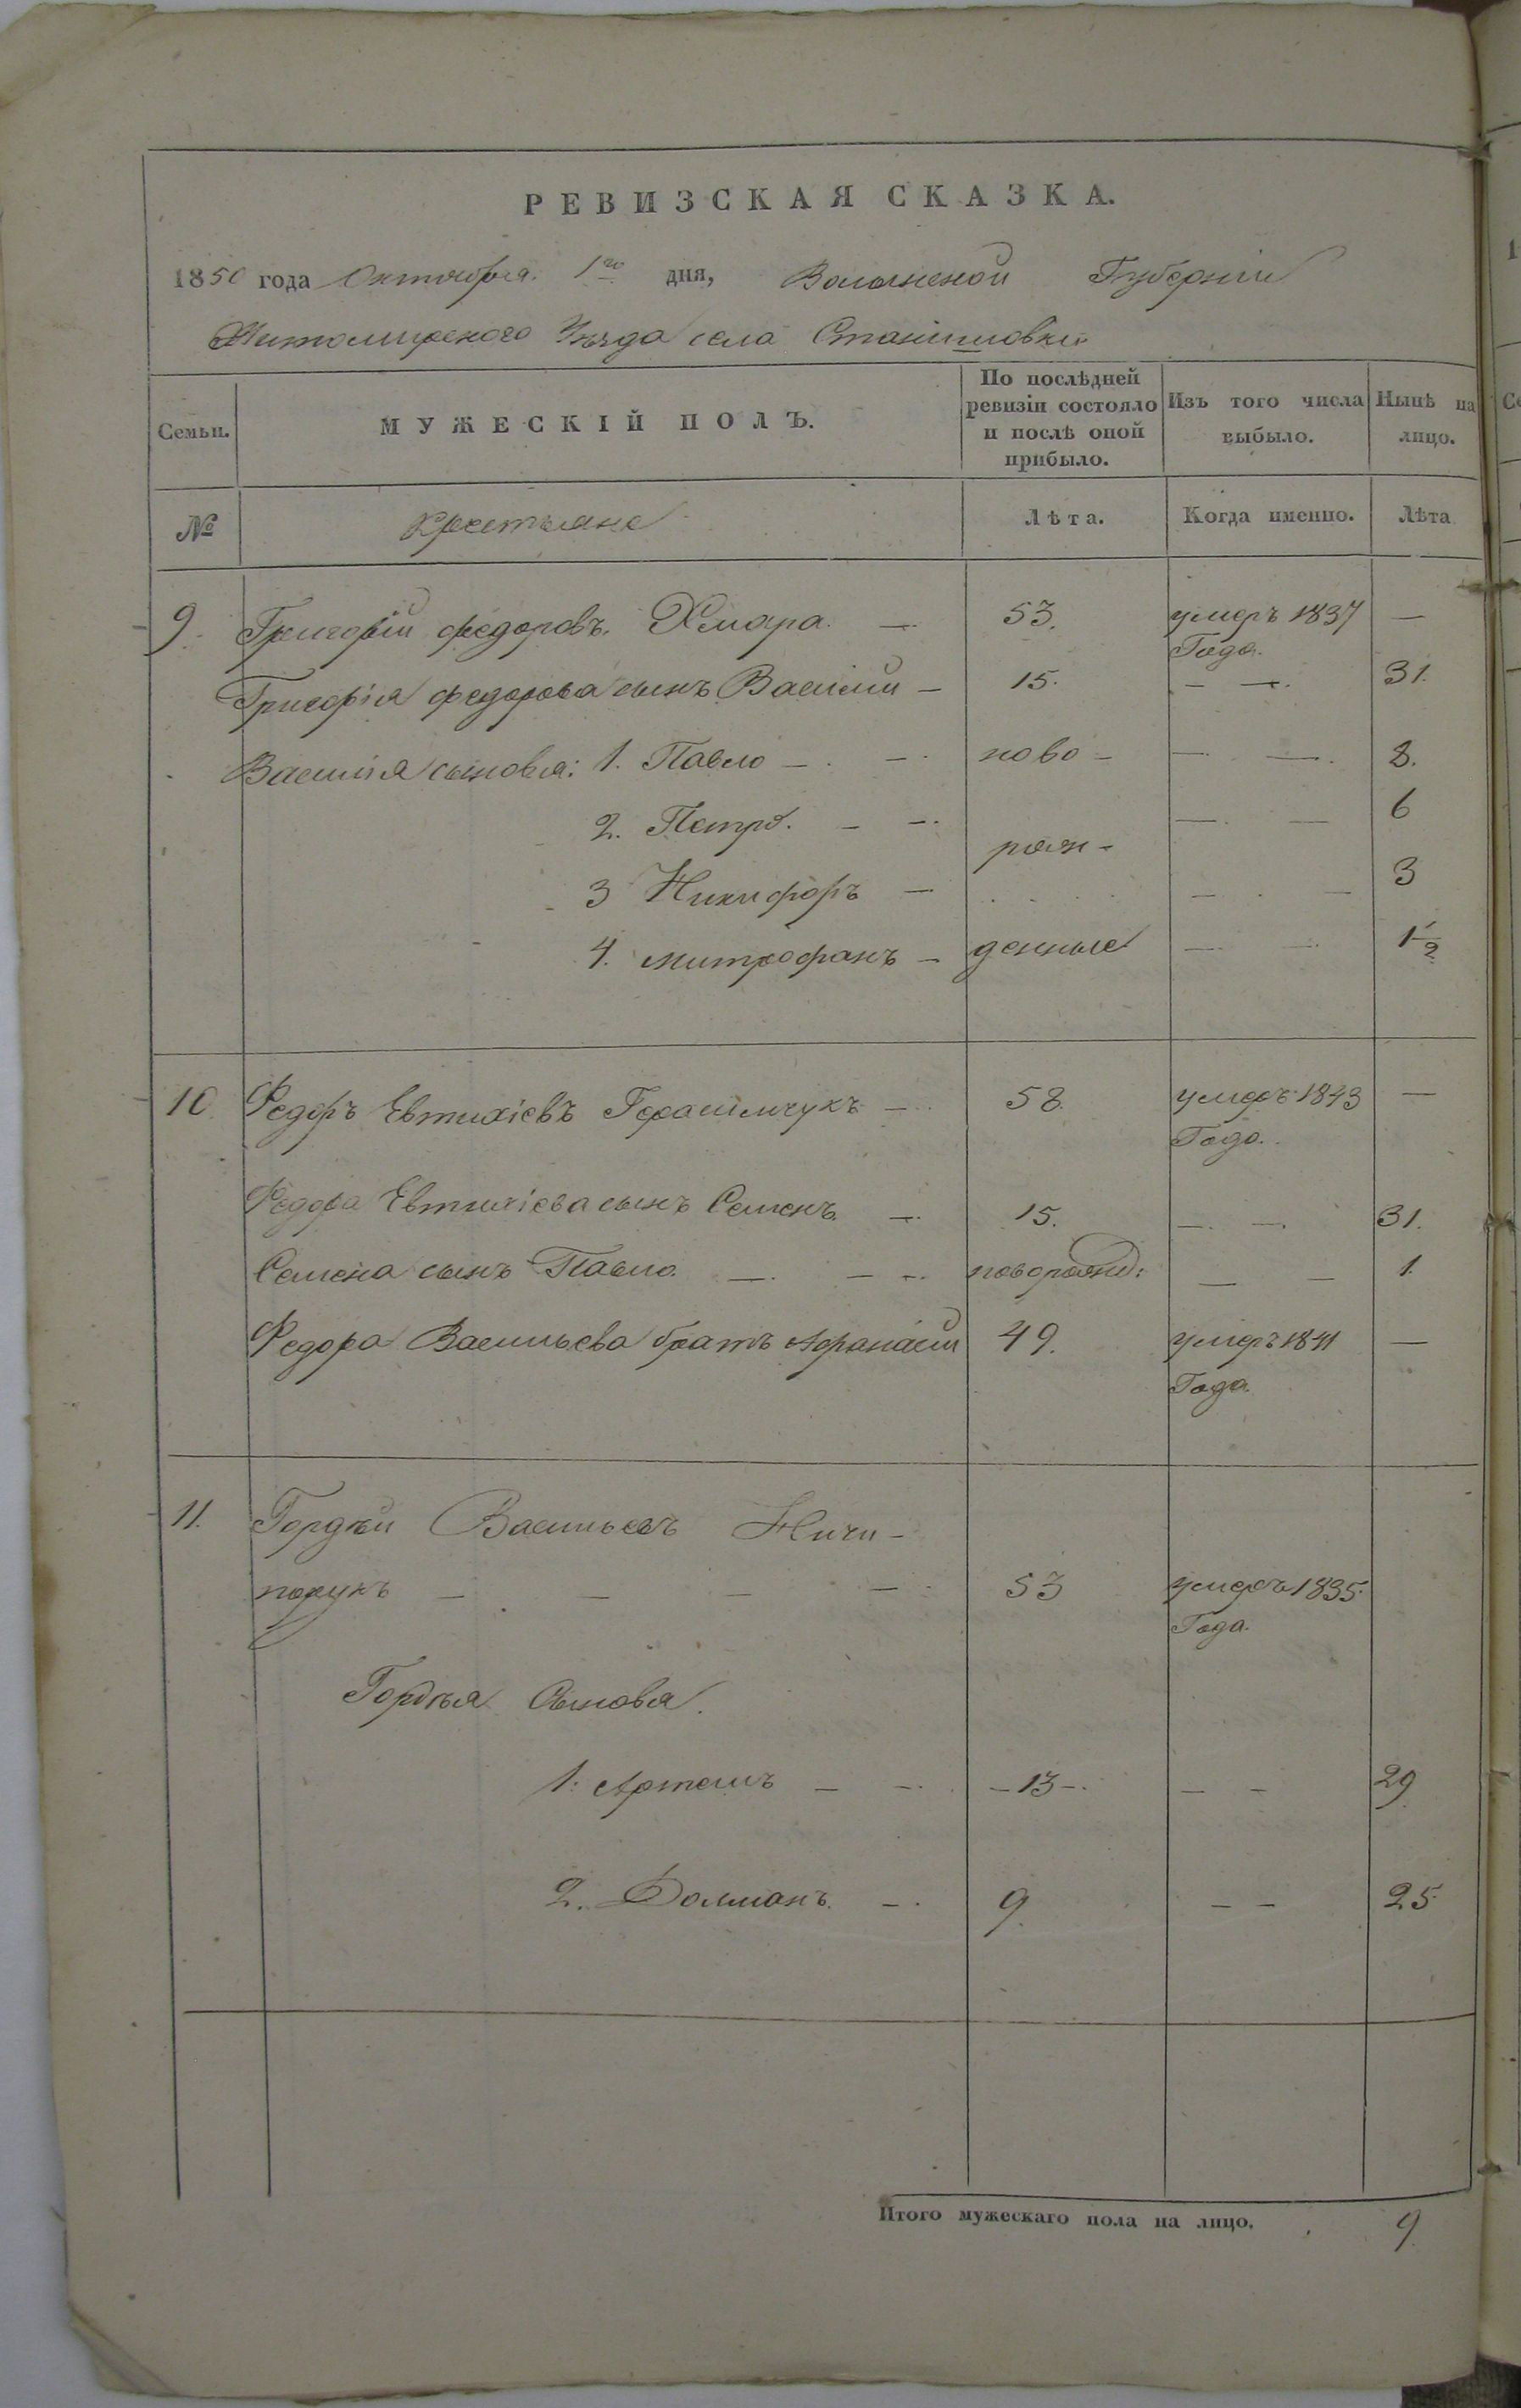 РЕВИЗСКАЯ СКАЗКА.
1850 года Октября 1го дня, Волынской Губерніи
Житомирского Уѣзда села Станишовки
Семьи. МУЖЕСКІЙ ПОЛЪ. По послѣдней ревизіи состояло и послѣ оной прибыло. Изъ того числа выбыло. Нынѣ на лицо.
№ Крестьяне Лѣта. Когда именно. Лѣта
9. Григорій Федоровъ Хмара. — 53. умеръ 1837 —
Года.
Григорія Федорова сынъ Василій — 15. — —. 31.
Василія сыновья: 1. Павло —. —. ново- —. —. 8.
2. Петръ. — —. —. — 6
рож-
3 Никифоръ — — . — 3
4. Митрофанъ — денные —. —. 1 1/2
10 Федоръ Евтихіевъ Герасимчукъ —. 58. умеръ 1843 —
Года.
Федора Евтихіева сынъ Семенъ —. 15. —. —. 31.
Семена сынъ Павло. —. — —. новорожд: — — 1.
Федора Васильева братъ Афанасій 49. умеръ 1841 —
Года.
11. Гордѣй Васильевъ Ничи-
порукъ — — — —. 53 умеръ 1835.
Года.
Гордѣя Сыновья.
1: Артемъ — —. —13—. — — 29
2. Долманъ. —. 9. — — 25
Итого мужескаго пола на лицо. 9